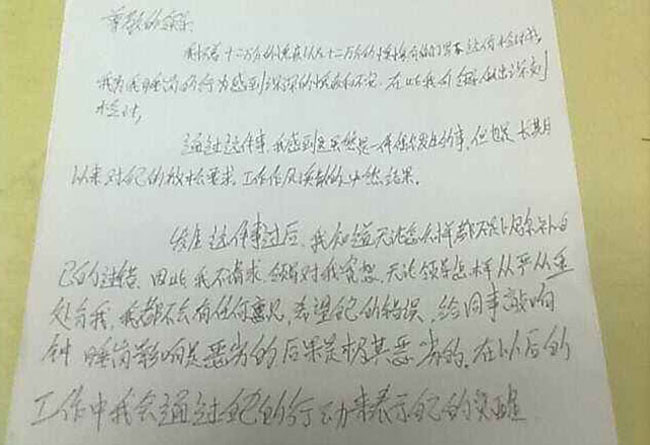 尊敬的领导
我怀着十二万分的愧疚以及十二万分的懊悔向你们写下这份检讨书,
我为我睡岗的行为感到深深的愧疚和不安,在此我向领导做出深刻
检讨,
通过这件事,我感到这虽然是一件偶然发生的事,但也是长期
以来对自己的放松要求,工作作风涣散的必然结果,
发生这件事过后,我知道无论怎样都不足以弥补自
己的过错,因此我不请求领导对我宽恕,无论领导怎样从严从重
处分我,我都不会有任何意见,希望自己的错误,给同事敲响
钟 睡岗影响是恶劣的后果是极其恶劣的,在以后的
工作中我会通过自己的行动来表示自己的觉醒